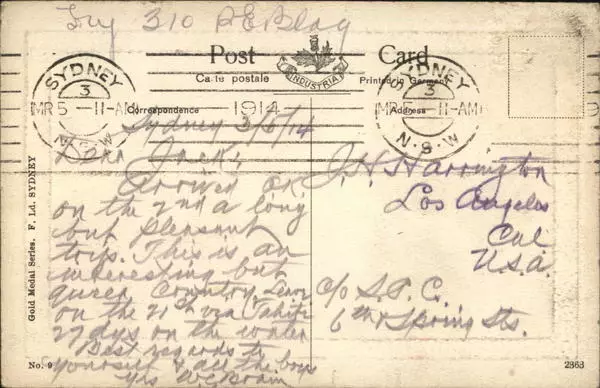 Try 310 P.E. Bldg
Post Card
Carte postale
INDUSTRIA
Printed in Germany
Correspondence
Address
SYDNEY
3
MR 5 11-AM
N.S.W
1914
SYDNEY
3
MR 5 11-AM
N.S.W
Sydney 3/5/14
Dear Jack;
Arrived OK.
on the 2nd a long
but pleasant
trip. This is an
interesting but
queer Country. Leave
on the 21st via Tahiti
27 dys on the water
Best regards to
yourself & all the boys
Yrs
J. H. Harrington
Los Angeles
Cal
U.S.A.
c/o S.P.C.
6th & Spring Sts.
Gold Medal Series. F. Ld. SYDNEY
No. 9
2363